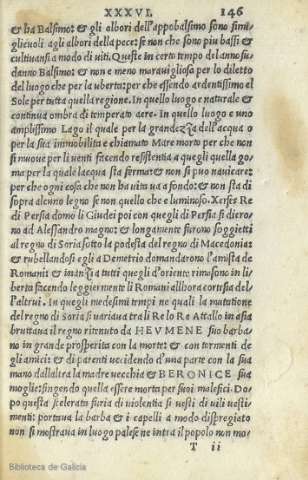 XXXVI. 146
& ha Balsimo: & gli albori dell'appobalsimo sono simi-
glievoli agli albori della pece: se non che sono piu bassi &
cultivansi a modo di viti. Queste in certo tempo del anno su-
danno Balsimo: & non e meno maravigliosa per lo diletto
del luogo che per la ubertà: per che essendo ardentissimo el
Sole per tutta quella regione. In quello luogo e naturale &
continua ombra di temperato aere. In quello luogo e uno
amplissimo Lago il quale per la grandeza dell'acqua o
per la sua immobilita e chiamato Mare morto per che non
si muove per li venti facendo resistentia a quegli quella go-
ma per la quale lacqua sta ferma: & non si puo navicare:
per che ogni cosa che non ha vita va a fondo: & non sta di
sopra alcuno legno se non quello che e luminoso. Xerses Re
di Persia domo li Giudei poi con quegli di Persia si diero-
no ad Alessandro magno: & longamente furono soggietti
al regno di Soria sotto la podesta del regno di Macedonia:
& rubellandosi egli a Demetrio domandarono l'amista de
Romani: & inanza tutti quegli d'oriente rimasono in li-
berta facendo leggiermente li Romani allhora cortesia del-
l'altrui. In quegli medesimi tempi ne quali la mutatione
del regno di Soria si variava tra li Re lo Re Attallo in asia
bruttava il regno ritenuto da HEVMENE suo barba-
no in grande prosperita con la morte: & con tormenti de
gli amici: & di parenti uccidendo d'una parte con la sua
mano dalla tra la madre vecchia & BERONICE sua
moglie: fingendo quella essere morta per suoi malefici. Do-
po questa scelerato furia di violentia si vesti di vili vesti-
menti: portava la barba & i capelli a modo dispregiato
non si mostrava in luogo palese ne intra il popolo non mo-
T ii
Biblioteca de Galicia